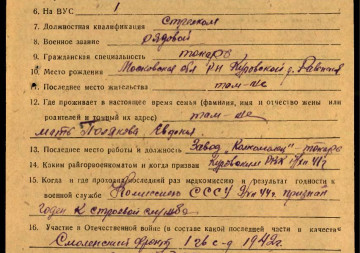 6. На ВУС 1
7. Должностная квалификация Стрелком
8. Военное звание рядовой
9. Гражданская специальность токарь
10. Место рождения Московская обл. р-н Куровской д.
11. Последнее место жительства там-же
12. Где проживает в настоящее время семья (фамилия, имя и отчество жены или
родителей и точный их адрес) там-же
мать Евдокия
13. Последнее место работы и должность Завод токарь
14. Каким райгорвоенкоматом и когда призван Куровским РВК
15. Когда и где проходил последний раз медкомиссию и результат годности к
военной службе Комиссию СССУ 44г. признан
годен к строевой службе
16. Участие в Отечественной войне (в составе какой последней части и в качестве
Смоленский фронт 1 гв с-д 1942г.